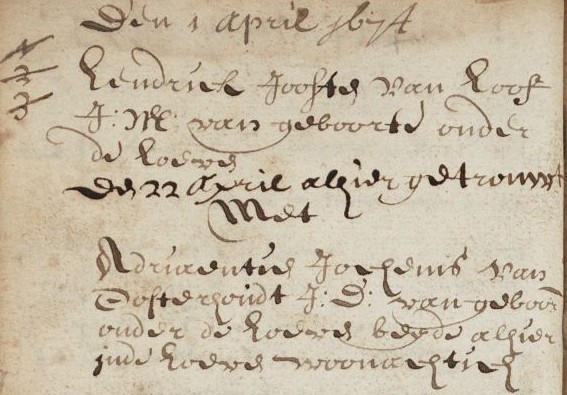 Den 1 April 1674
1
2
3
Hendrick Joosten van Hooft
J: M: van geboorte onder
de Hoeven
den 22 April alhier getrouwt
Met
Adriaentien Jochems van
Oosterhoudt J: D: van geboort
onder de Hoeven beyde alhier
inde Hoeven woonachtich